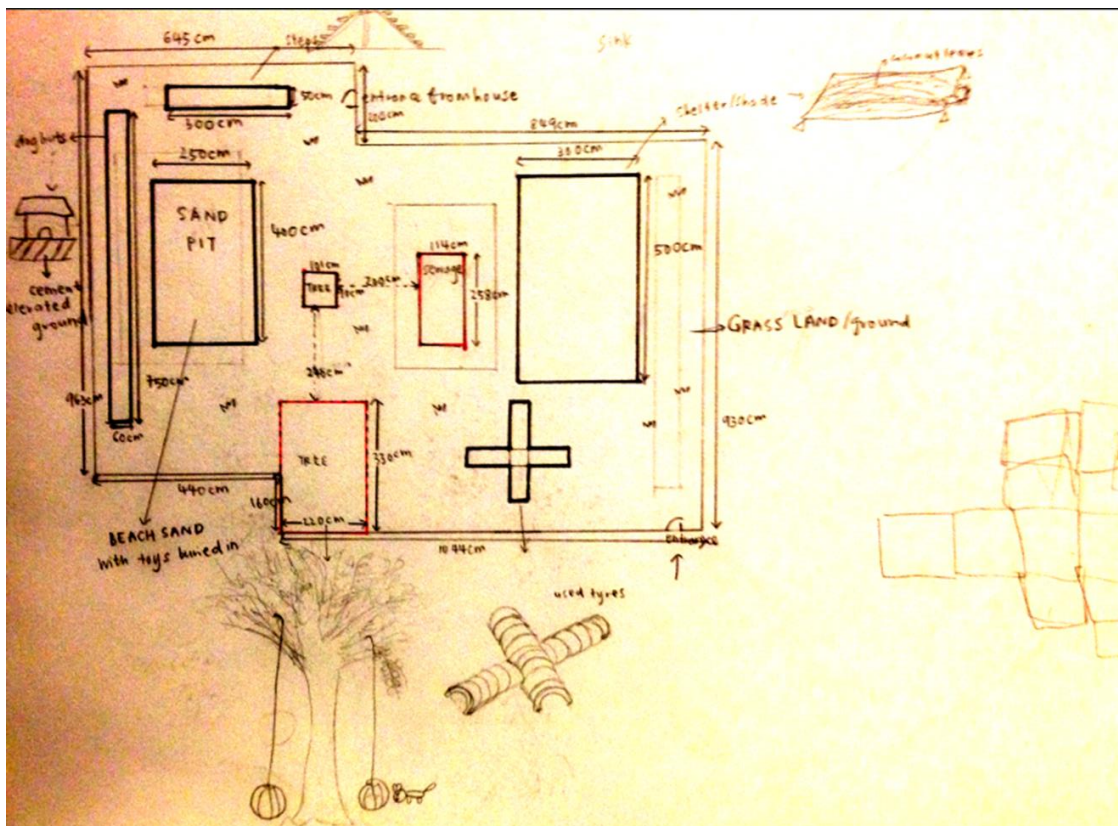 645cm
steps
sink
coconut leaves
50cm
entrance from house
200cm
shelter/shade
300cm
849cm
dog huts
250cm
300cm
SAND
PIT
400cm
114cm
sewage
500cm
101cm
TREE
90cm
200cm
258cm
cement
elevated
ground
GRASS LAND/ground
246cm
750cm
963cm
60cm
930cm
TREE
330cm
440cm
160cm
220cm
1044cm
Entrance
BEACH SAND
with toys buried in
used tyres